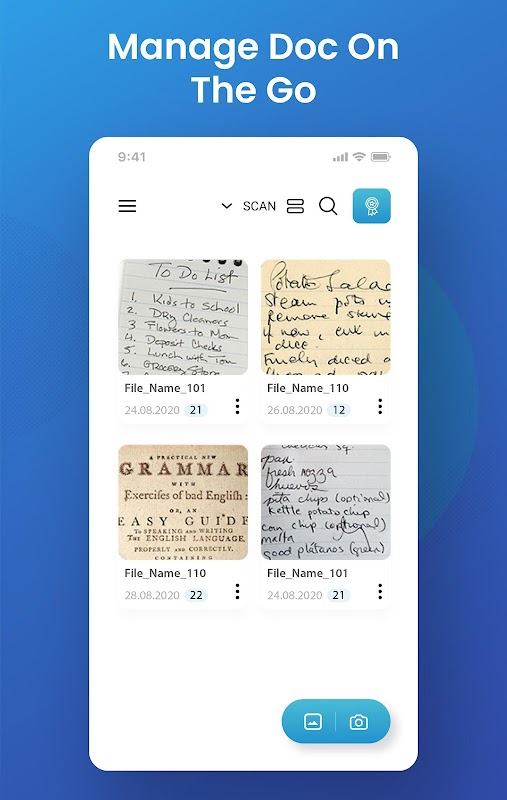 Manage Doc On
The Go
9:41
SCAN
To Do List
1. Kids to School
2. Dry Cleaners
3 Flowers to Mom
4. Deposit Checks
5. Lunch with Tom
6. Grocery Store
File_Name_101
24.08.2020 21
Potato Salad
Steam pots
Remove
if new
dice.
Finely diced
File_Name_110
26.08.2020 12
A PRACTICAL NEW
GRAMMAR
WITH
Exercises of bad English:
OR, AN
EASY GUIDE
To SPEAKING and WRITING
The ENGLISH LANGUAGE
PROPERLY AND CORRECTLY,
CONTAINING
File_Name_110
28.08.2020 22
pan
fresh mozza
huevos
pita chips (optional)
Kettle potato chip
corn chip (optional)
malta
good plátanos (green)
File_Name_101
24.08.2020 21